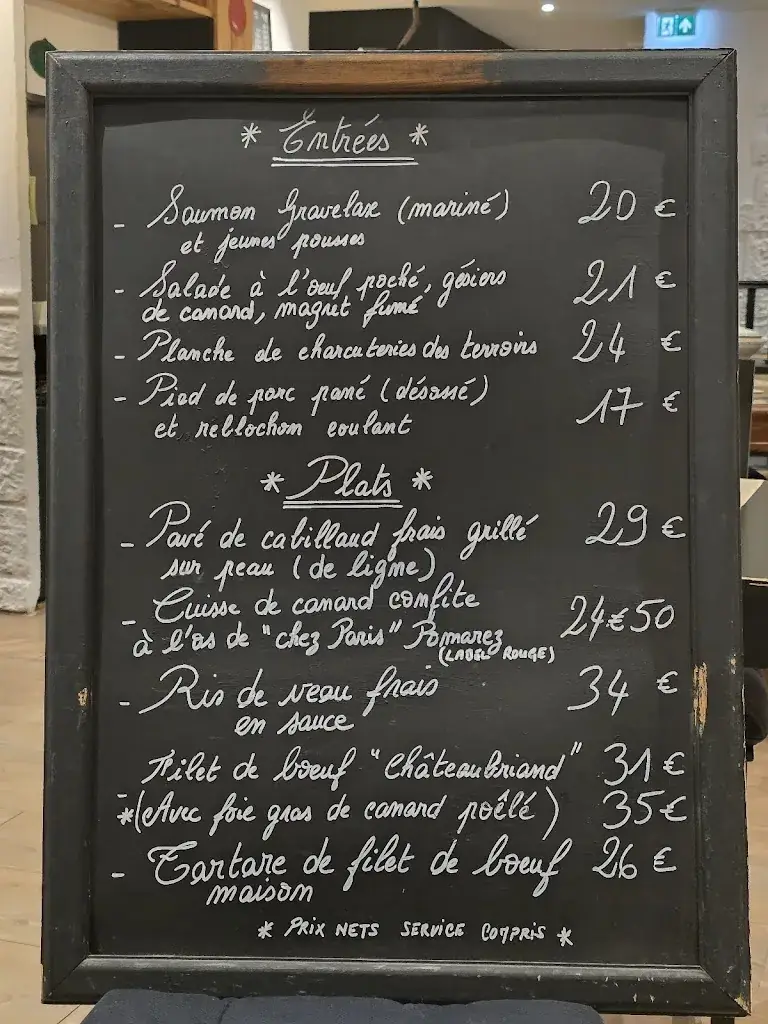 * Entrées *
- Saumon Gravelax (mariné) 20 €
et jeunes pousses
- Salade à l'œuf poché, gésiers 21 €
de canard, magret fumé
- Planche de charcuteries des terroirs 24 €
- Pied de porc pané (désossé) 17 €
et reblochon coulant
* Plats *
- Pavé de cabillaud frais grillé 29 €
sur peau (de ligne)
- Cuisse de canard confite 24€50
à l'os de "chez Paris" Pomarez
(LABEL ROUGE)
- Ris de veau frais 34 €
en sauce
- Filet de bœuf "Châteaubriand" 31 €
*(Avec foie gras de canard poêlé) 35 €
- Tartare de filet de bœuf 26 €
maison
* PRIX NETS SERVICE COMPRIS *